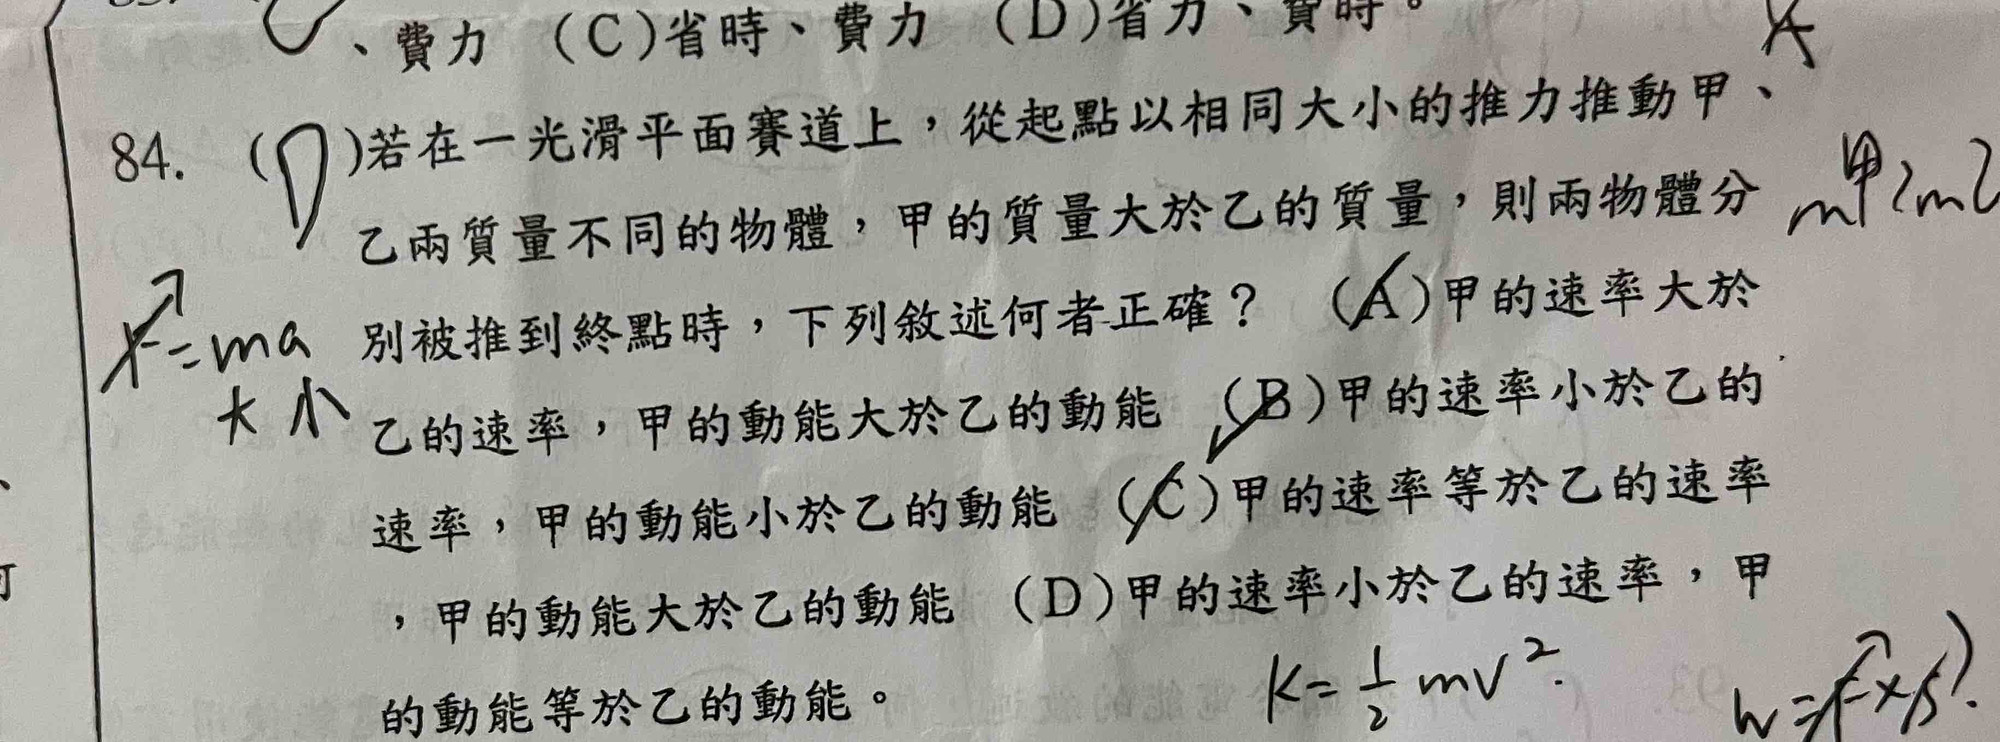 、費力 (C)省時、費力 (D)省力、費時。
A
84. (D)若在一光滑平面賽道上，從起點以相同大小的推力推動甲、
乙兩質量不同的物體，甲的質量大於乙的質量，則兩物體分
m甲>m乙
別被推到終點時，下列敘述何者正確？ (A)甲的速率大於
F=ma
大 小
乙的速率，甲的動能大於乙的動能 (B)甲的速率小於乙的
速率，甲的動能小於乙的動能 (C)甲的速率等於乙的速率
，甲的動能大於乙的動能 (D)甲的速率小於乙的速率，甲
的動能等於乙的動能。
K=1/2 mv².
W=F×S?